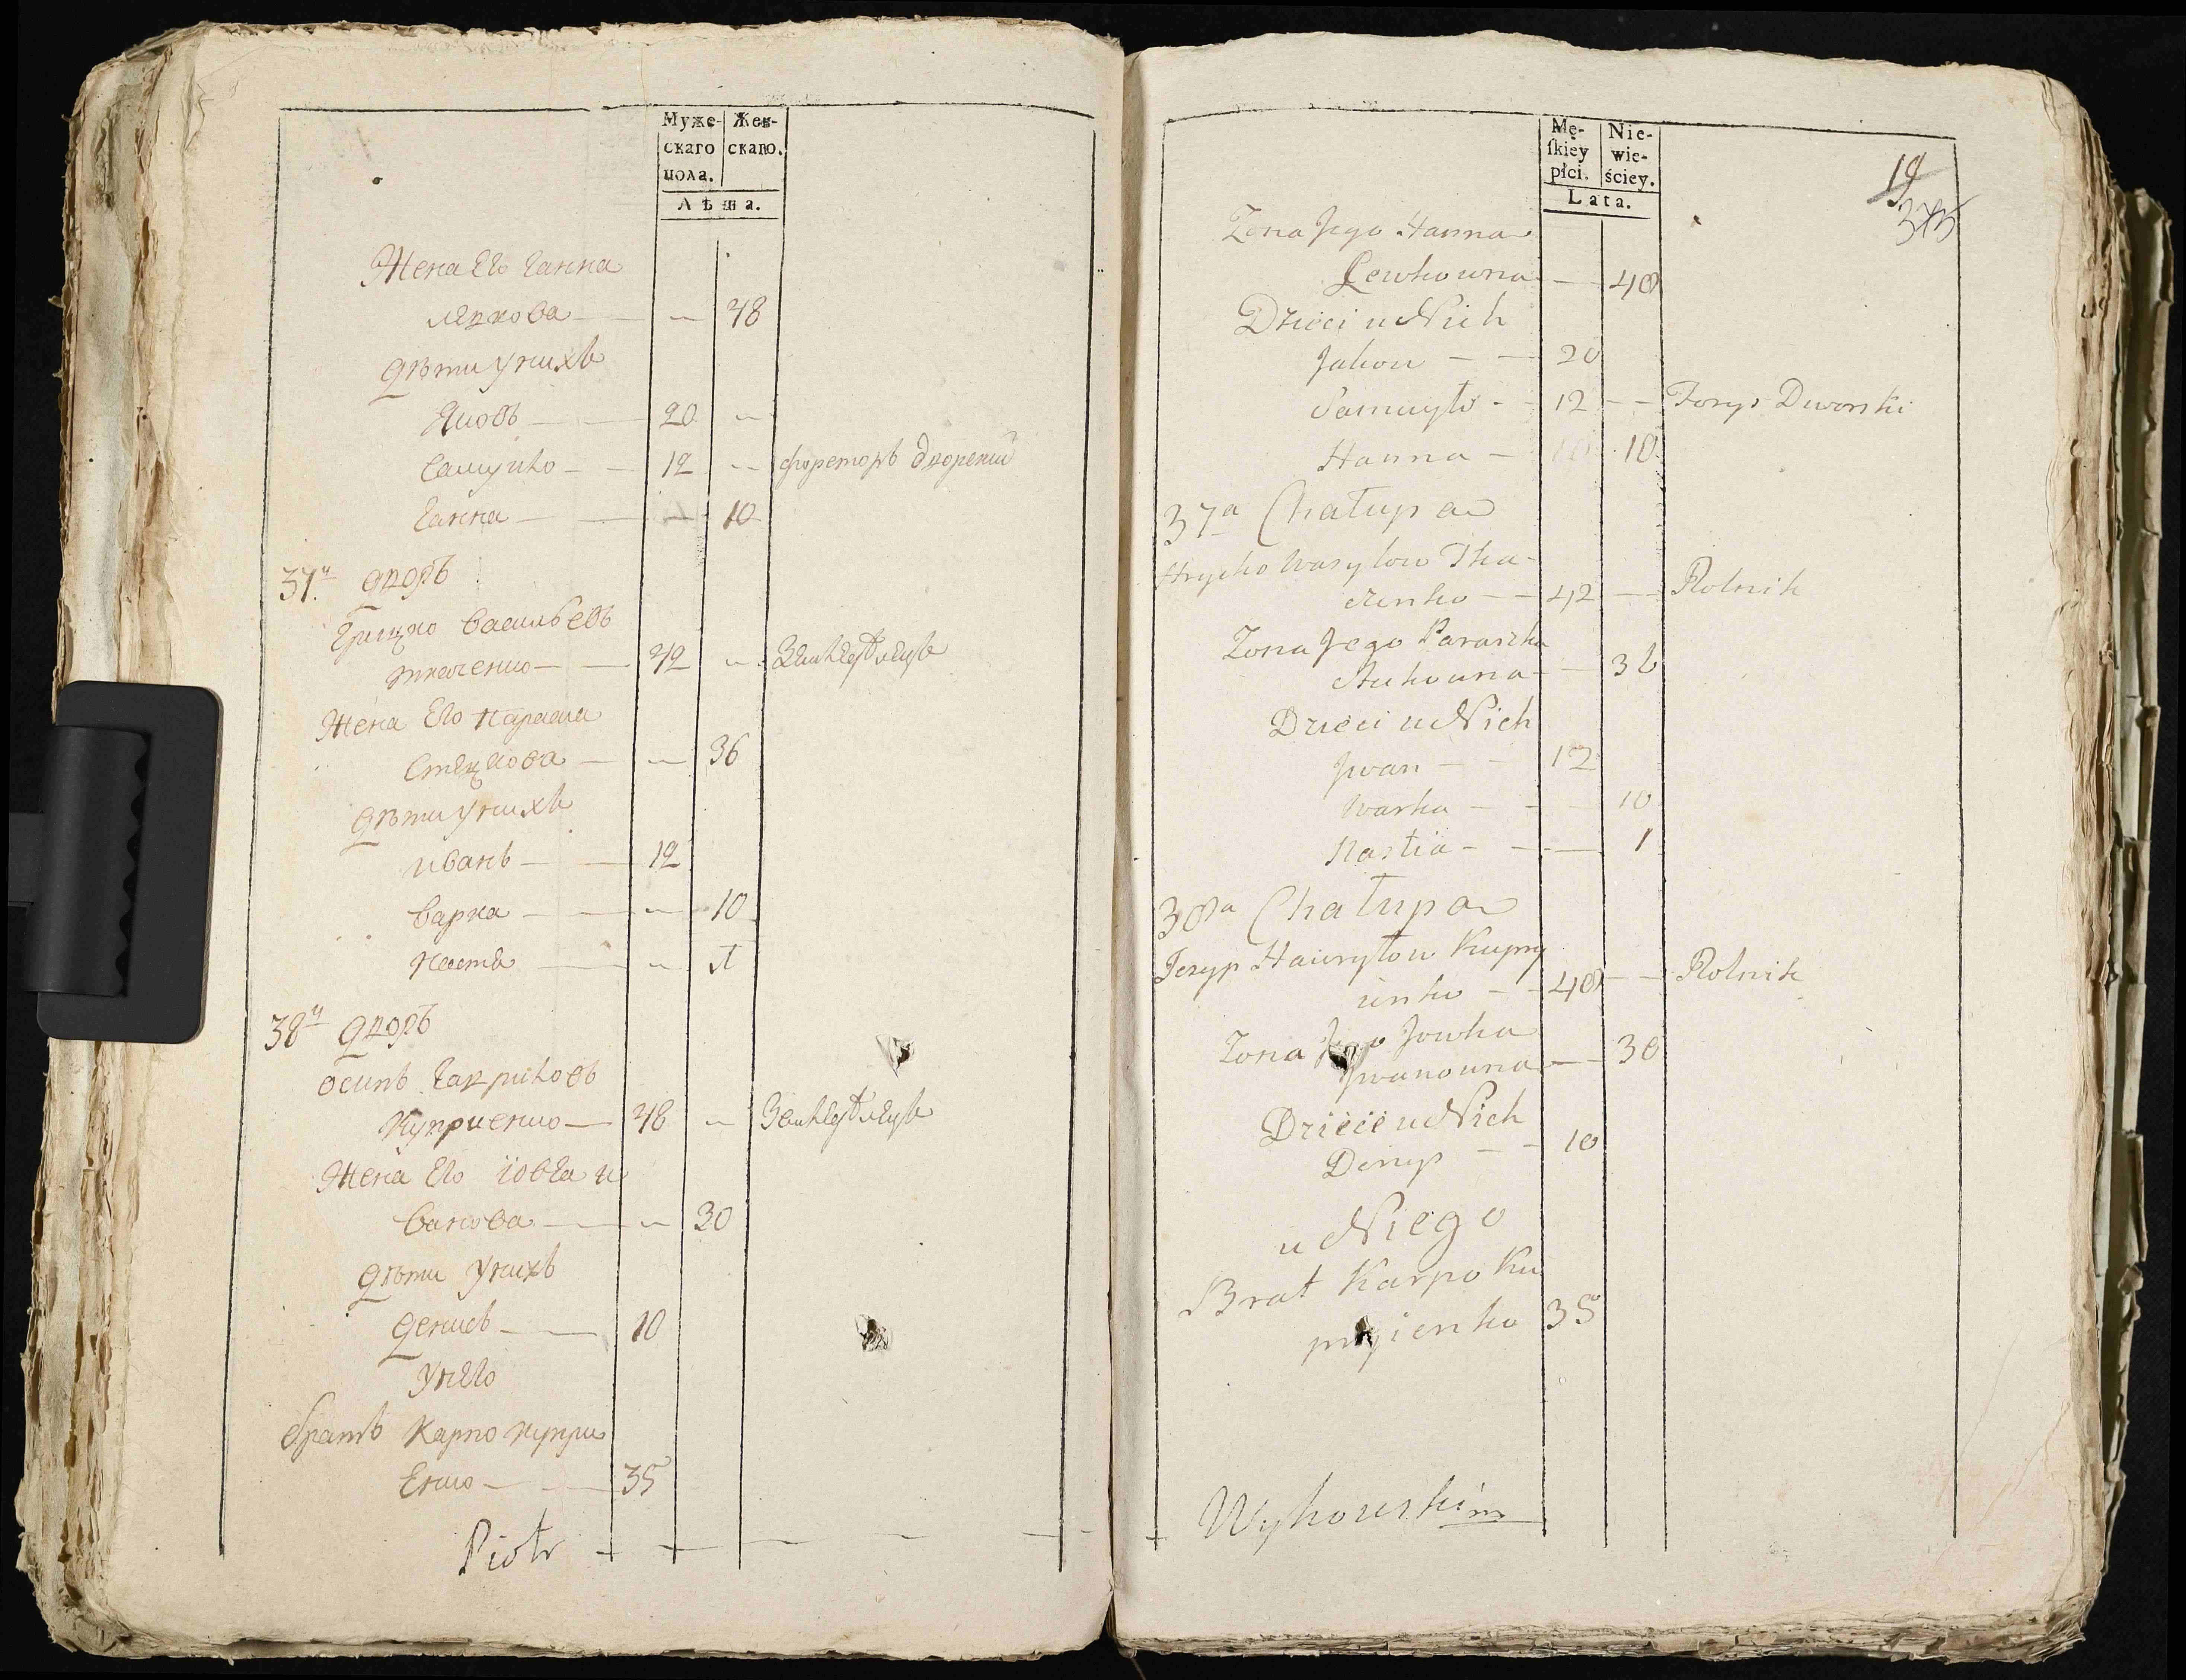 Муже-
скаго
пола.
Жен-
скаго.
Лѣта.
Жена Его Ганна
левкова — — „ 48
Дѣти у нихъ
Яковъ — — 20 „
Самуило — — 12 „ форейторъ дворский
Ганна — — — 10
37й дворъ
Грицко Васильевъ
ткаченко — — 42 „
Жена Его Параска
Стецкова — „ 36
Дѣти у нихъ
иванъ — — 12
Варка — — „ 10
Настя — „ 1
38й дворъ
осипъ Гавриловъ
Куприенко — 48 „
Жена Его ίовга и
ванова — „ 30
Дѣти у нихъ
Денисъ — — 10
у него
братъ Карпо купри
Енко — — 35
Piotr
Mę-
ſkiey
płci.
Nie-
wie-
ściey.
Lata.
19
Zona Jego Hanna
Lewkowna — 48
Dzieci u Nich
Jakow — — 20
Samuyło - - 12 — — Forys Dworski
Hanna — 10
37a Chałupa
Hrycko Wasylow Tka-
czenko — — 42 — — Rolnik
Zona Jego Paraszka
Steckowna — — 36
Dzieci u Nich
Jwan — — 12
Warka — — — 10
Nastia — — — 1
38a Chałupa
Jozyp Hawryłow Kupry
ienko — — 48 — — Rolnik
Zona Jego Jowha
Jwanowna — — 30
Dzieci u Nich
Denys — — 10
u Niego
Brat Karpo Ku
pryienko 35
Wyhowskim